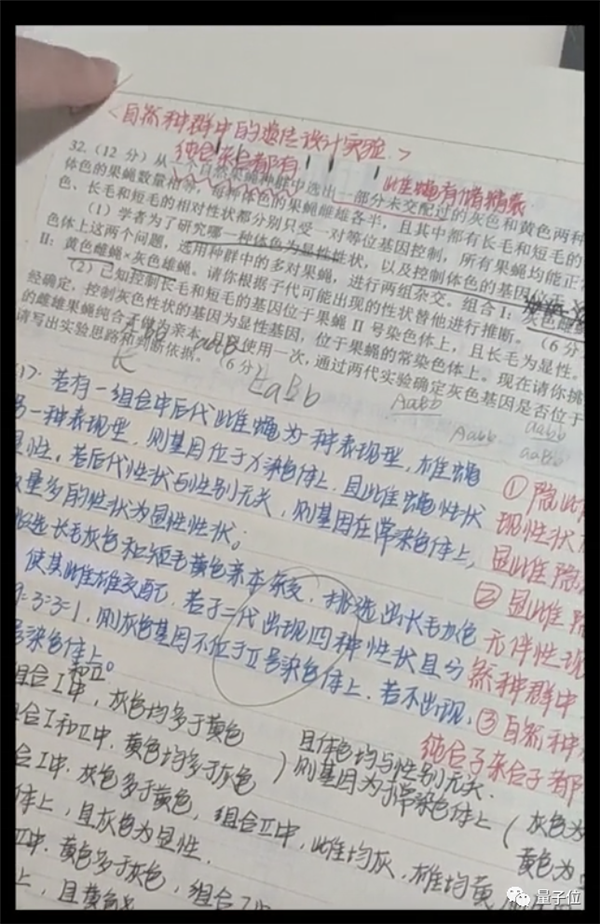 <自然种群中的遗传设计实验>
纯合杂合都有
此雌蝇有储精囊
32.(12分)从一个自然果蝇种群中选出一部分未交配过的灰色和黄色两种
体色的果蝇数量相等,每种体色的果蝇雌雄各半,且其中都有长毛和短毛的
色、长毛和短毛的相对性状都分别只受一对等位基因控制,所有果蝇均能正常
(1)学者为了研究哪一种体色为显性性状,以及控制体色的基因
色体上这两个问题,选用种群中的多对果蝇,进行两组杂交。组合I:灰色雌蝇
II:黄色雌蝇×灰色雄蝇。请你根据子代可能出现的性状替他进行推断。(6分
(2)已知控制长毛和短毛的基因位于果蝇II号染色体上,且长毛为显性。
经确定,控制灰色性状的基因为显性基因,位于果蝇的常染色体上。现在请你挑
的雌雄果蝇纯合子做为亲本,使用一次,通过两代实验确定灰色基因是否位于
请写出实验思路和判断依据。(6分)
aabb
AaBb Aabb
若有一组合中后代雌蝇为一种表现型,雄蝇
另一种表现型,则基因位于X染色体上,且此雌蝇性状
显性。若后代性状与性别无关,则基因在常染色体上,
数量多的性状为显性性状。
挑选长毛灰色和短毛黄色亲本杂交,挑选出长毛灰色
使其雌雄交配,若子二代出现四种性状且分
9:3:3:1,则灰色基因不位于II号染色体上,若不出现,
号染色体上
和Ⅱ。
组合I中,灰色均多于黄色
组合I和II中,黄色均多于灰色
且体色均与性别无关.
则基因为于常染色体上(灰色为
黄色为
合I中,灰色多于黄色,组合II中,雌均灰,雄均黄
体上,且灰色为显性.
II中,黄色多于灰色,组合I中
上,且黄色
① 隐雌
现性状
显雌隐
② 显雌
无伴性现
然种群中
③ 自然种
纯合子杂合子都
量子位